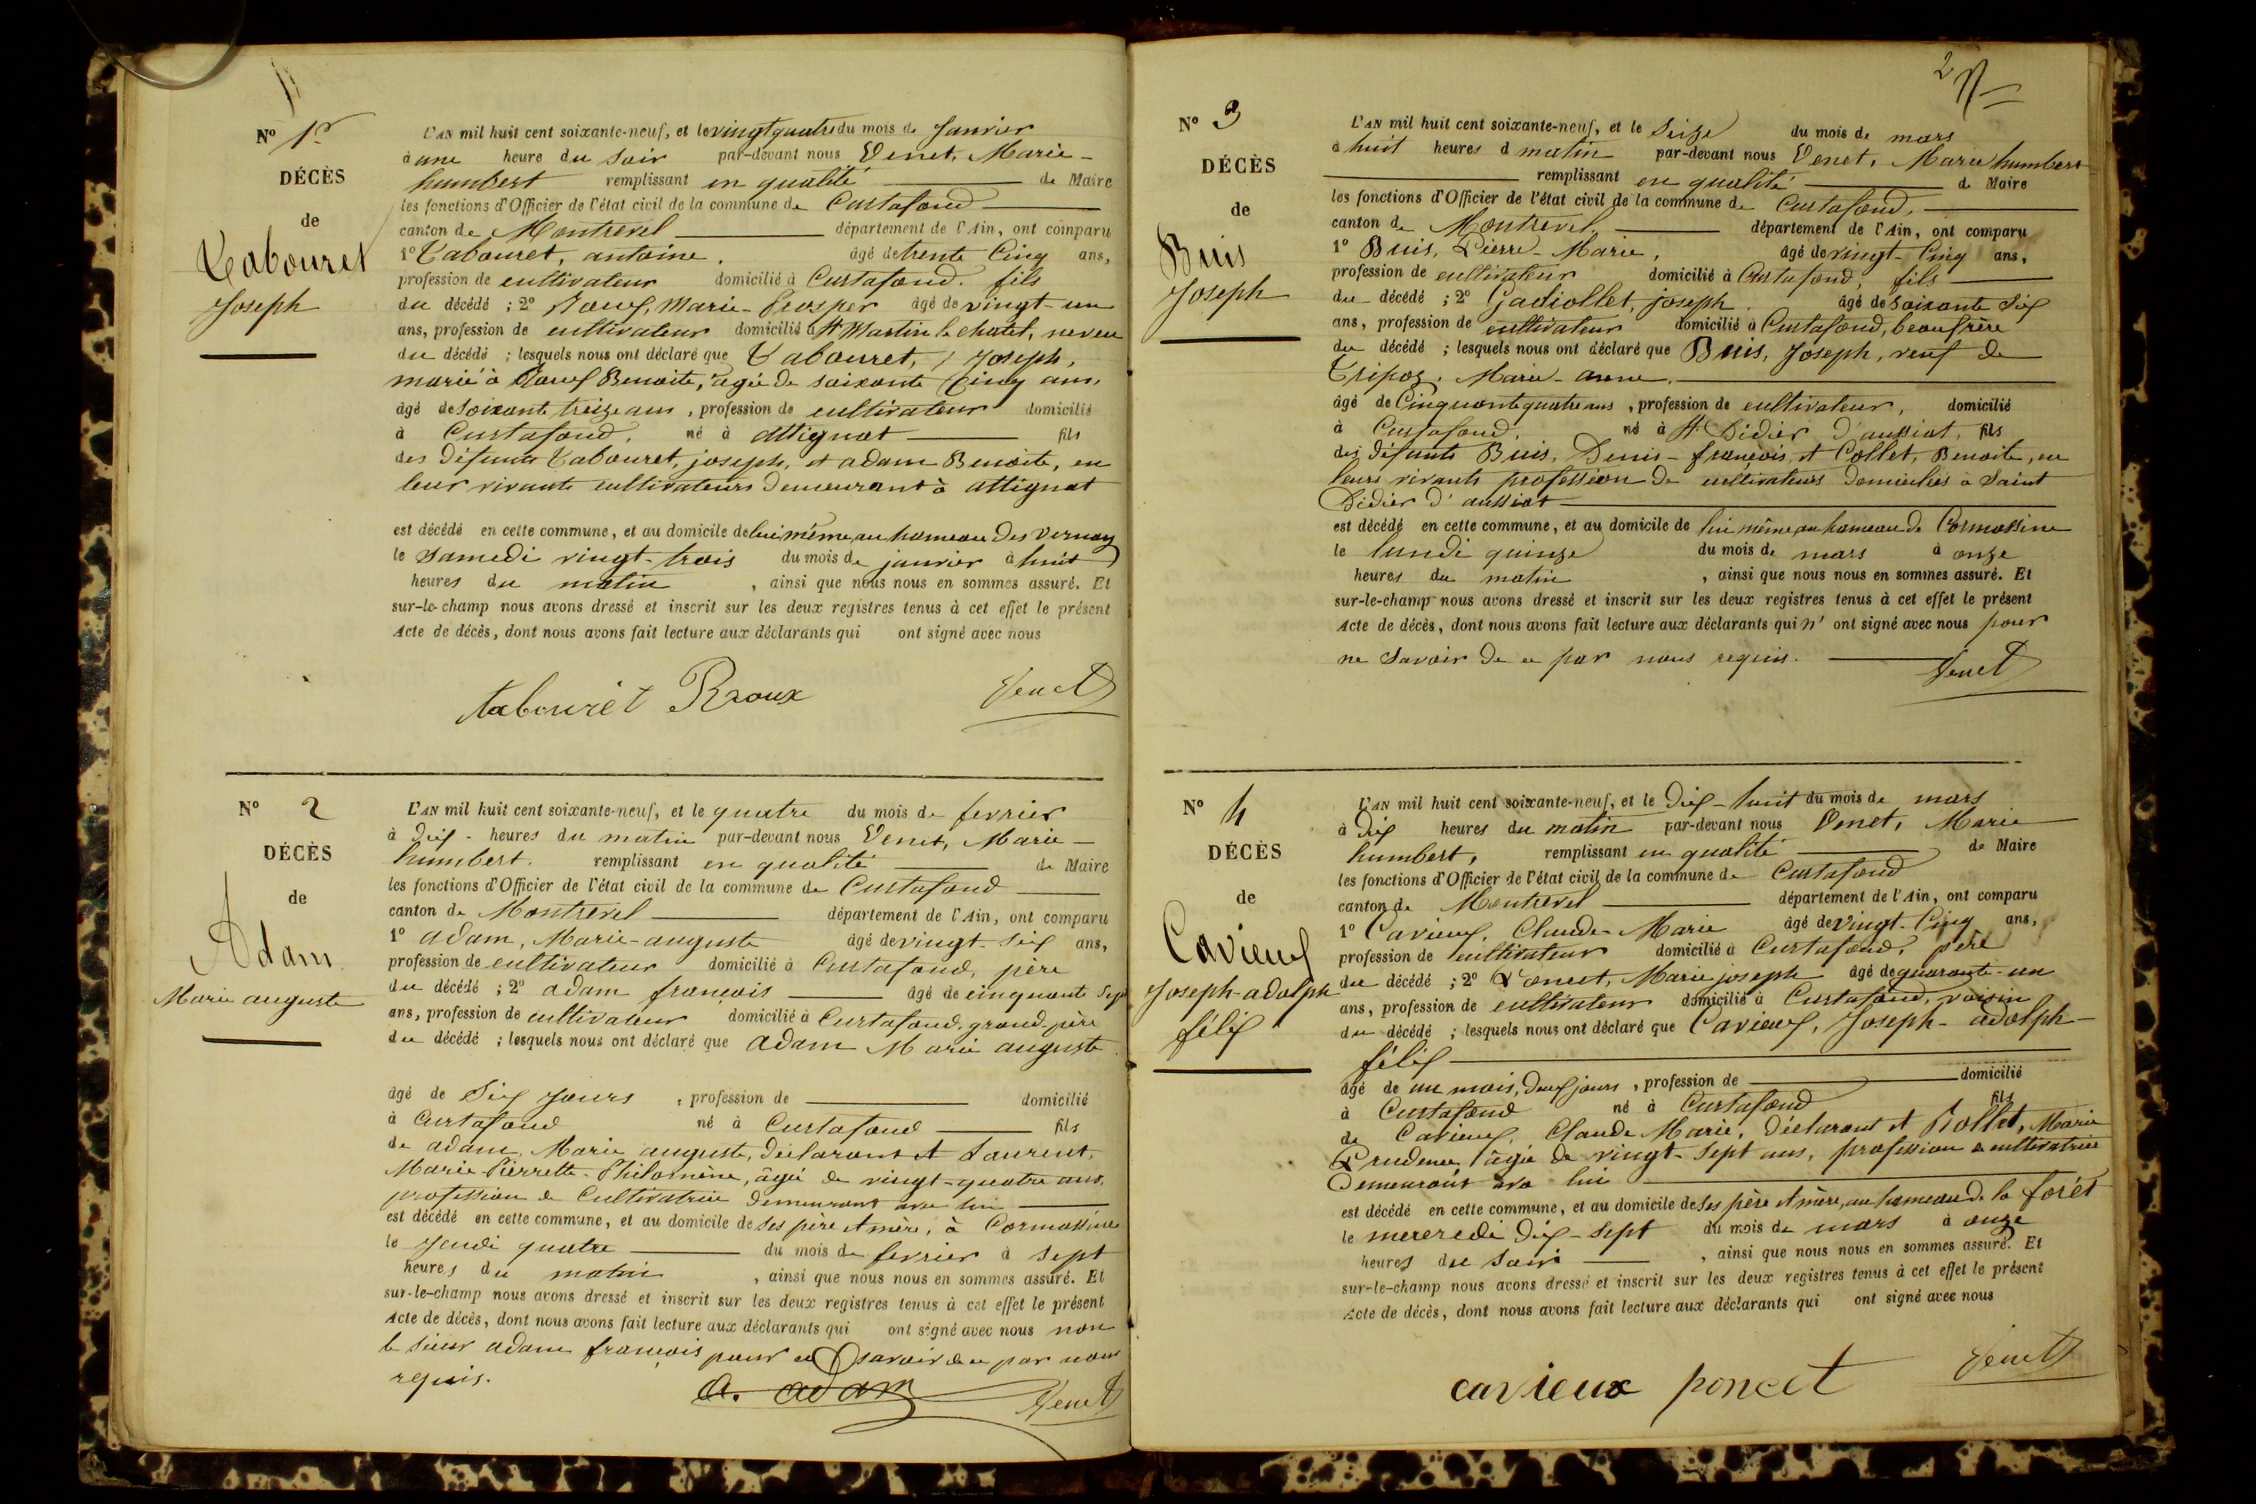 N° 1er
DÉCÈS
de
Tabouret
Joseph
L'AN mil huit cent soixante-neuf, et le vingt quatre du mois de Janvier
à une heure du soir par-devant nous Venet, Marie-
humbert remplissant en qualité de Maire
les fonctions d'Officier de l'état civil de la commune de Curtafond
canton de Montrevel département de l'Ain, ont comparu
1° Tabouret, antoine, âgé de trente Cinq ans,
profession de cultivateur domicilié à Curtafond. fils
du décédé ; 2° Roux, Marie-Prosper âgé de vingt-un
ans, profession de cultivateur domicilié à St Martin le chatel, neveu
du décédé ; lesquels nous ont déclaré que Tabouret, Joseph,
marié à Roux Benoite, âgée de soixante Cinq ans,
âgé de Soixante treize ans, profession de cultivateur domicilié
à Curtafond, né à attignat fils
des défunts Tabouret, joseph, et adam Benoite, en
leur vivants cultivateurs demeurant à attignat
est décédé en cette commune, et au domicile de lui même au hameau des Vernay
le Samedi vingt-trois du mois de janvier à huit
heures du matin, ainsi que nous nous en sommes assuré. Et
sur-le-champ nous avons dressé et inscrit sur les deux registres tenus à cet effet le présent
Acte de décès, dont nous avons fait lecture aux déclarants qui ont signé avec nous
tabouret Rroux Venet
N° 2
DÉCÈS
de
Adam
Marie auguste
L'AN mil huit cent soixante-neuf, et le quatre du mois de fevrier
à dix- heures du matin par-devant nous Venet, Marie-
humbert. remplissant en qualité de Maire
les fonctions d'Officier de l'état civil de la commune de Curtafond
canton de Montrevel département de l'Ain, ont comparu
1° adam, Marie-auguste âgé de vingt-six ans,
profession de cultivateur domicilié à Curtafond, père
du décédé ; 2° adam françois âgé de cinquante Sept
ans, profession de cultivateur domicilié à Curtafond, grand-père
du décédé ; lesquels nous ont déclaré que adam Marie auguste
âgé de Six Jours, profession de domicilié
à Curtafond né à Curtafond fils
de adam, Marie auguste, déclarant et Laurent,
Marie-Pierrette-Philomène, âgée de vingt-quatre ans,
profession de Cultivatrice demeurant avec lui
est décédé en cette commune, et au domicile de ses père et mère, à Cormassine
le Jeudi quatre du mois de fevrier à sept
heures du matin, ainsi que nous nous en sommes assuré. Et
sur-le-champ nous avons dressé et inscrit sur les deux registres tenus à cet effet le présent
Acte de décès, dont nous avons fait lecture aux déclarants qui ont signé avec nous non
le sieur adam françois pour ne savoir de ce par nous
requis.
a. adam Venet
2
N° 3
DÉCÈS
de
Buis
Joseph
L'AN mil huit cent soixante-neuf, et le Seize du mois de mars
à huit heures d matin par-devant nous Venet, Marie humbert
remplissant en qualité de Maire
les fonctions d'Officier de l'état civil de la commune de Curtafond,
canton de Montrevel, département de l'Ain, ont comparu
1° Buis, Pierre-Marie, âgé de vingt-Cinq ans,
profession de cultivateur domicilié à Curtafond, fils
du décédé ; 2° Gadiollet, joseph. âgé de Soixante Six
ans, profession de cultivateur domicilié à Curtafond, beaufrère
du décédé ; lesquels nous ont déclaré que Buis, Joseph, veuf de
Tripoz, Marie-anne,
âgé de Cinquante quatre ans, profession de cultivateur, domicilié
à Curtafond, né à St Didier d'aussiat, fils
des défunts Buis, Denis-françois, et Collet, Benoite, en
leurs vivants profession de cultivateurs domiciliés à Saint
Didier d'aussiat
est décédé en cette commune, et au domicile de lui même au hameau de Cormassine
le lundi quinze du mois de mars à onze
heures du matin, ainsi que nous nous en sommes assuré. Et
sur-le-champ nous avons dressé et inscrit sur les deux registres tenus à cet effet le présent
Acte de décès, dont nous avons fait lecture aux déclarants qui n' ont signé avec nous pour
ne savoir de ce par nous requis.
Venet
N° 4
DÉCÈS
de
Cavieux
Joseph-adolph
félix
L'AN mil huit cent soixante-neuf, et le Dix-huit du mois de mars
à dix heures du matin par-devant nous Venet, Marie
humbert, remplissant en qualité de Maire
les fonctions d'Officier de l'état civil de la commune de Curtafond
canton de Montrevel département de l'Ain, ont comparu
1° Cavieux, Claude-Marie âgé de vingt-Cinq ans,
profession de cultivateur domicilié à Curtafond, père
du décédé ; 2° Poncet, Marie joseph âgé de quarante-un
ans, profession de cultivateur domicilié à Curtafond, voisin
du décédé ; lesquels nous ont déclaré que Cavieux, Joseph-adolph-
félix
âgé de un mois, deux jours, profession de domicilié
à Curtafond né à Curtafond fils
de Cavieux, Claude Marie, déclarant et Rollet, Marie
Prudence, âgée de vingt-sept ans, profession de cultivatrice
demeurant avec lui
est décédé en cette commune, et au domicile de ses père et mère, au hameau de la forêt
le mercredi dix-sept du mois de mars à onze
heures du soir, ainsi que nous nous en sommes assuré. Et
sur-le-champ nous avons dressé et inscrit sur les deux registres tenus à cet effet le présent
Acte de décès, dont nous avons fait lecture aux déclarants qui ont signé avec nous
cavieux poncet Venet